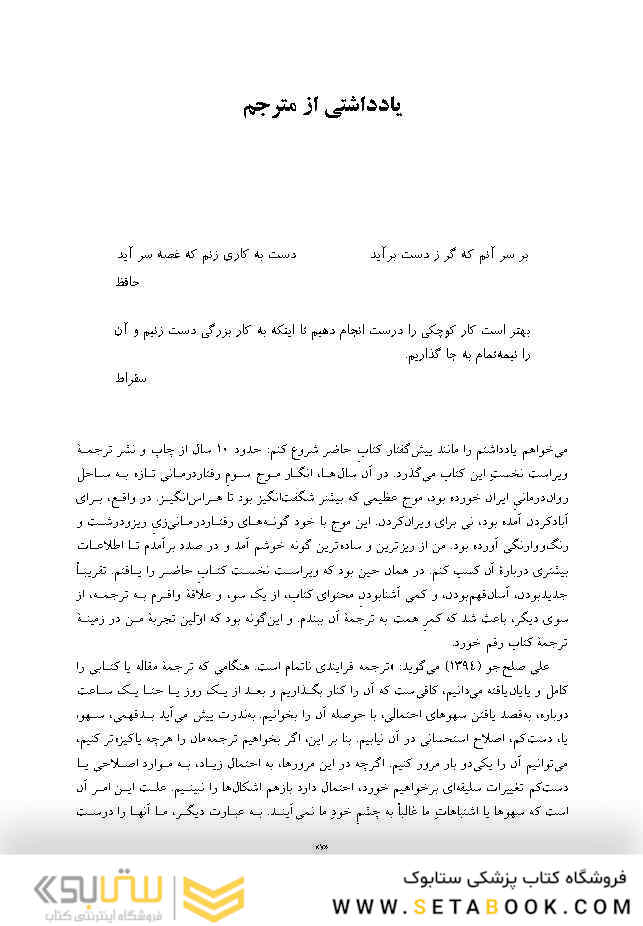 یادداشتی از مترجم
بر سر آنم که گر ز دست برآید دست به کاری زنم که غصه سر آید
حافظ
بهتر است کار کوچکی را درست انجام دهیم تا اینکه به کار بزرگی دست زنیم و آن
را نیمه‌تمام به جا گذاریم.
سقراط
می‌خواهم یادداشتم را مانند پیش‌گفتار کتاب حاضر شروع کنم: حدود ۱۰ سال از چاپ و نشر ترجمهٔ
ویراست نخستِ این کتاب می‌گذرد. در آن سال‌ها، انگار موج سومِ رفتاردرمانی تازه به ساحل
روان‌درمانیِ ایران خورده بود، موج عظیمی که بیشتر شگفت‌انگیز بود تا هراس‌انگیز. در واقع، برای
آبادکردن آمده بود، نی برای ویران‌کردن. این موج با خود گونه‌های رفتاردرمانی‌زیِ ریزودرشت و
رنگ‌ووارنگی آورده بود. من از ریزترین و ساده‌ترین گونه خوشم آمد و در صدد برآمدم تا اطلاعات
بیشتری دربارهٔ آن کسب کنم. در همان حین بود که ویراست نخست کتابِ حاضر را یافتم. تقریباً
جدیدبودن، آسان‌فهم‌بودن، و کمی آشنابودنِ محتوای کتاب، از یک سو، و علاقهٔ وافرم به ترجمه، از
سوی دیگر، باعث شد که کمرِ همت به ترجمهٔ آن ببندم. و این‌گونه بود که اوّلین تجربهٔ من در زمینهٔ
ترجمهٔ کتاب رقم خورد.
علی صلح‌جو (۱۳۹٤) می‌گوید: «ترجمه فرایندی ناتمام است. هنگامی که ترجمهٔ مقاله یا کتابی را
کامل و پایان‌یافته می‌دانیم، کافی‌ست که آن را کنار بگذاریم و بعد از یک روز یا حتا یک ساعت
دوباره، به‌قصد یافتن سهوهای احتمالی، با حوصله آن را بخوانیم. به‌ندرت پیش می‌آید بدفهمی، سهو،
یا، دست‌کم، اصلاح استحسانی در آن نیابیم. بنا بر این، اگر بخواهیم ترجمه‌مان را هرچه پاکیزه‌تر کنیم،
می‌توانیم آن را یکی‌دو بار مرور کنیم. اگرچه در این مرورها، به احتمال زیاد، به موارد اصلاحی یا
دست‌کم تغییرات سلیقه‌ای برخواهیم خورد، احتمال دارد بازهم اشکال‌ها را نبینیم. علت این امر آن
است که سهوها یا اشتباهاتِ ما غالباً به چشمِ خودِ ما نمی‌آیند. به عبارت دیگر، ما آنها را درست
«۷»
فروشگاه کتاب پزشکی ستابوک
WWW.SETABOOK.COM
ستابوک
فروشگاه اینترنتی کتاب